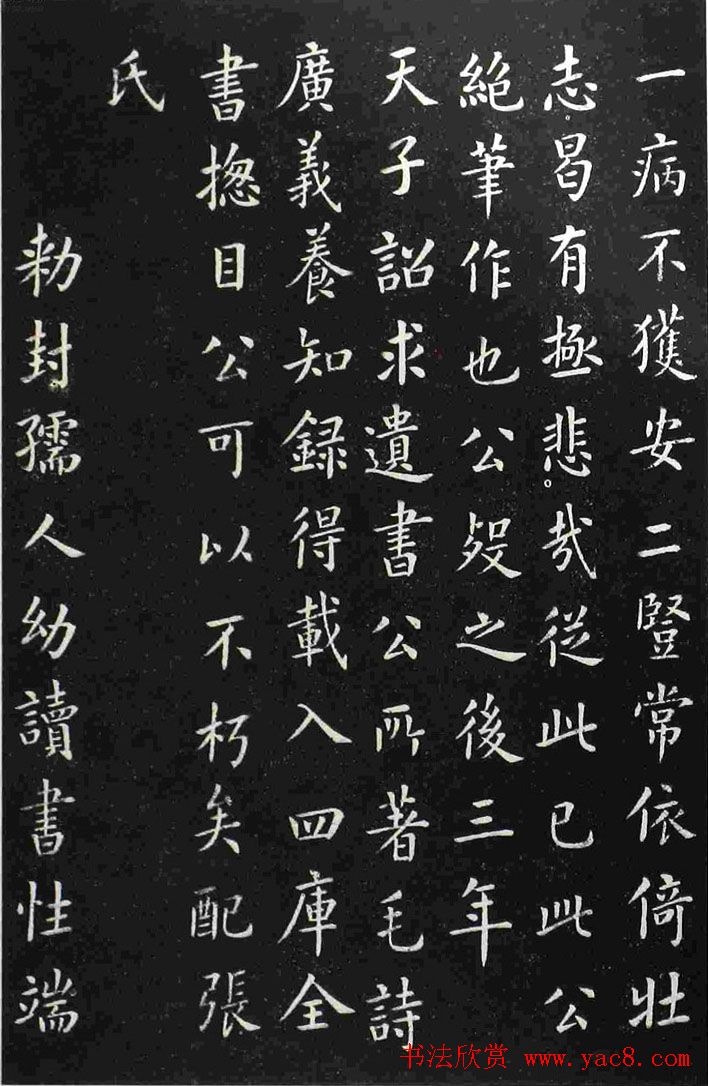 一病不獲安二豎常依倚壯
志曷有極悲哉從此已此公
絕筆作也公歿之後三年
天子詔求遺書公所著毛詩
廣義養知録得載入四庫全
書揔目公可以不朽矣配張
氏
勑封孺人幼讀書性端
书法欣赏 www.yac8.com